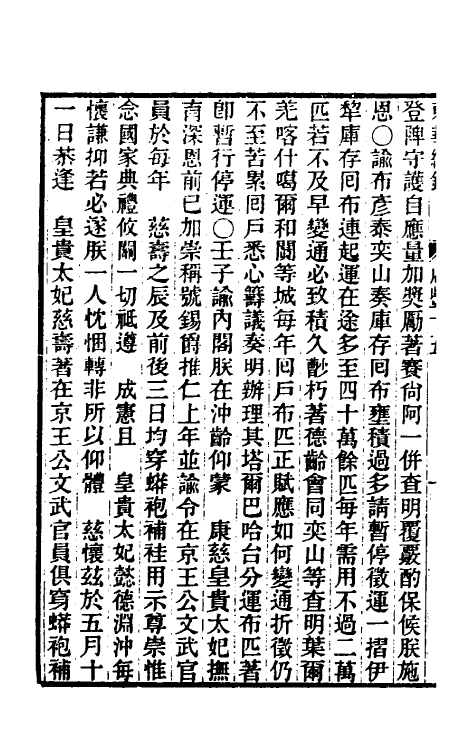 登陴守護自應量加奬勵著賽尙阿一併查明覆覈酌保候朕施
恩○諭布彥泰奕山奏庫存囘布壅積過多請暫停徵運一摺伊
犂庫存囘布連起運在途多至四十萬餘匹每年需用不過二萬
匹若不及早變通必致積久黴朽著德齡會同奕山等查明葉爾
羌喀什噶爾和闐等城每年囘戶布匹正賦應如何變通折徵仍
不至苦累囘戶悉心籌議奏明辦理其塔爾巴哈台分運布匹著
卽暫行停運○壬子諭內閣朕在沖齡仰蒙　康慈皇貴太妃撫
育深恩前已加崇稱號錫爵推仁上年並諭令在京王公文武官
員於每年　慈壽之辰及前後三日均穿蟒袍補褂用示尊崇惟
念國家典禮攸關一切祗遵　成憲且　皇貴太妃懿德淵沖每
懷謙抑若必遂朕一人忱悃轉非所以仰體　慈懷茲於五月十
一日恭逢　皇貴太妃慈壽著在京王公文武官員俱穿蟒袍補